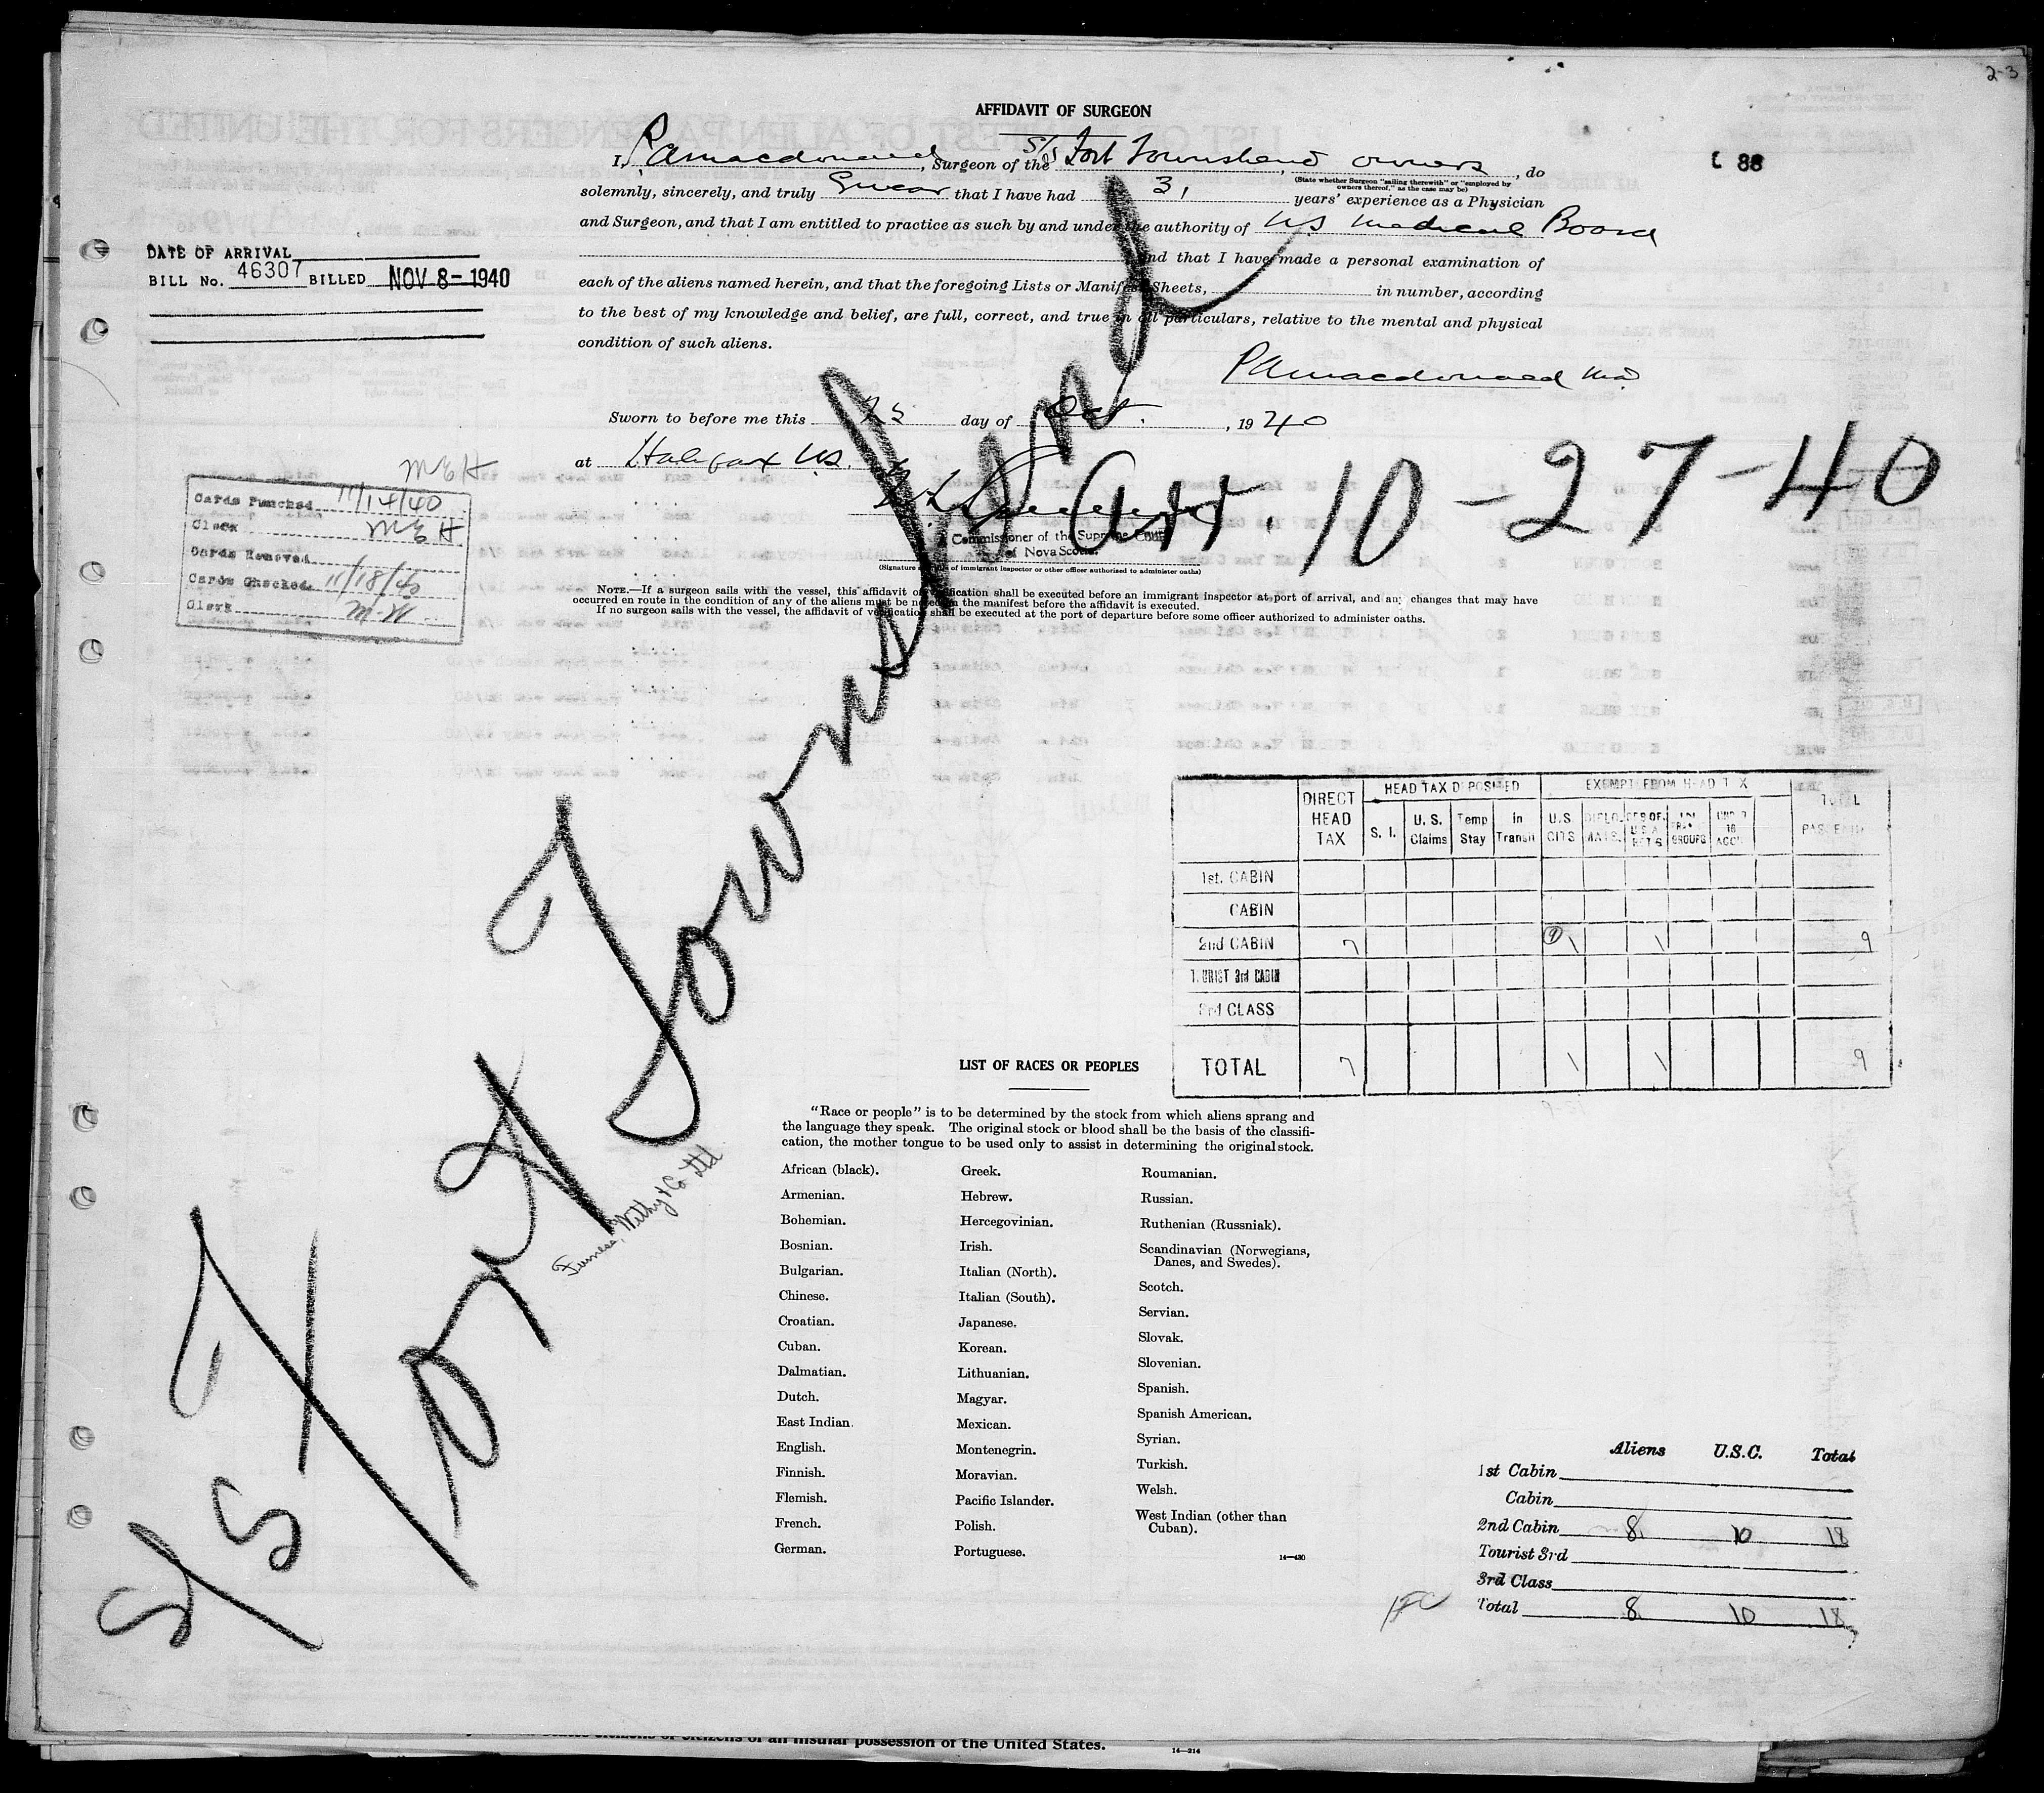 2-3
AFFIDAVIT OF SURGEON
I, P A Macdonald, Surgeon of the S/S Fort Townshend, owners, do
(State whether Surgeon "sailing therewith" or "employed by owners thereof," as the case may be)
solemnly, sincerely, and truly Swear that I have had 31 years' experience as a Physician
and Surgeon, and that I am entitled to practice as such by and under the authority of NS Medical Board
and that I have made a personal examination of
each of the aliens named herein, and that the foregoing Lists or Manifest Sheets, in number, according
to the best of my knowledge and belief, are full, correct, and true in all particulars, relative to the mental and physical
condition of such aliens.
P A Macdonald MD
88
DATE OF ARRIVAL
BILL No. 46307 BILLED NOV 8-1940
Sworn to before me this 25 day of Oct. , 1940
at Halifax N.S.
A Commissioner of the Supreme Court
of Nova Scotia.
(Signature of immigrant inspector or other officer authorized to administer oaths)
Arr. 10-27-40
MEH
Cards Punched 11/14/40
Clerk MEH
Cards Removed
Cards Checked 11/18/40
Clerk M.H
NOTE.—If a surgeon sails with the vessel, this affidavit of verification shall be executed before an immigrant inspector at port of arrival, and any changes that may have
occurred en route in the condition of any of the aliens must be noted on the manifest before the affidavit is executed.
If no surgeon sails with the vessel, the affidavit of verification shall be executed at the port of departure before some officer authorized to administer oaths.
S/S Fort Townshend
Furness, Withy & Co Ltd
DIRECT HEAD TAX HEAD TAX DEPOSITED EXEMPT FROM HEAD TAX TOTAL
S. I. U. S. Claims Temp Stay in Transit U.S CITS DIPLO. MATS. GROUPS PASSENG
1st. CABIN
CABIN
2nd CABIN 7 (9) 1 1 9
T. URIST 3rd CABIN
3rd CLASS
TOTAL 7 1 1 9
LIST OF RACES OR PEOPLES
"Race or people" is to be determined by the stock from which aliens sprang and
the language they speak. The original stock or blood shall be the basis of the classifi-
cation, the mother tongue to be used only to assist in determining the original stock.
African (black).
Armenian.
Bohemian.
Bosnian.
Bulgarian.
Chinese.
Croatian.
Cuban.
Dalmatian.
Dutch.
East Indian.
English.
Finnish.
Flemish.
French.
German.
Greek.
Hebrew.
Hercegovinian.
Irish.
Italian (North).
Italian (South).
Japanese.
Korean.
Lithuanian.
Magyar.
Mexican.
Montenegrin.
Moravian.
Pacific Islander.
Polish.
Portuguese.
Roumanian.
Russian.
Ruthenian (Russniak).
Scandinavian (Norwegians,
Danes, and Swedes).
Scotch.
Servian.
Slovak.
Slovenian.
Spanish.
Spanish American.
Syrian.
Turkish.
Welsh.
West Indian (other than
Cuban).
14—430
Aliens U.S.C. Total
1st Cabin
Cabin
2nd Cabin 8 10 18
Tourist 3rd
3rd Class
Total 8 10 18
of an insular possession of the United States.
14—214